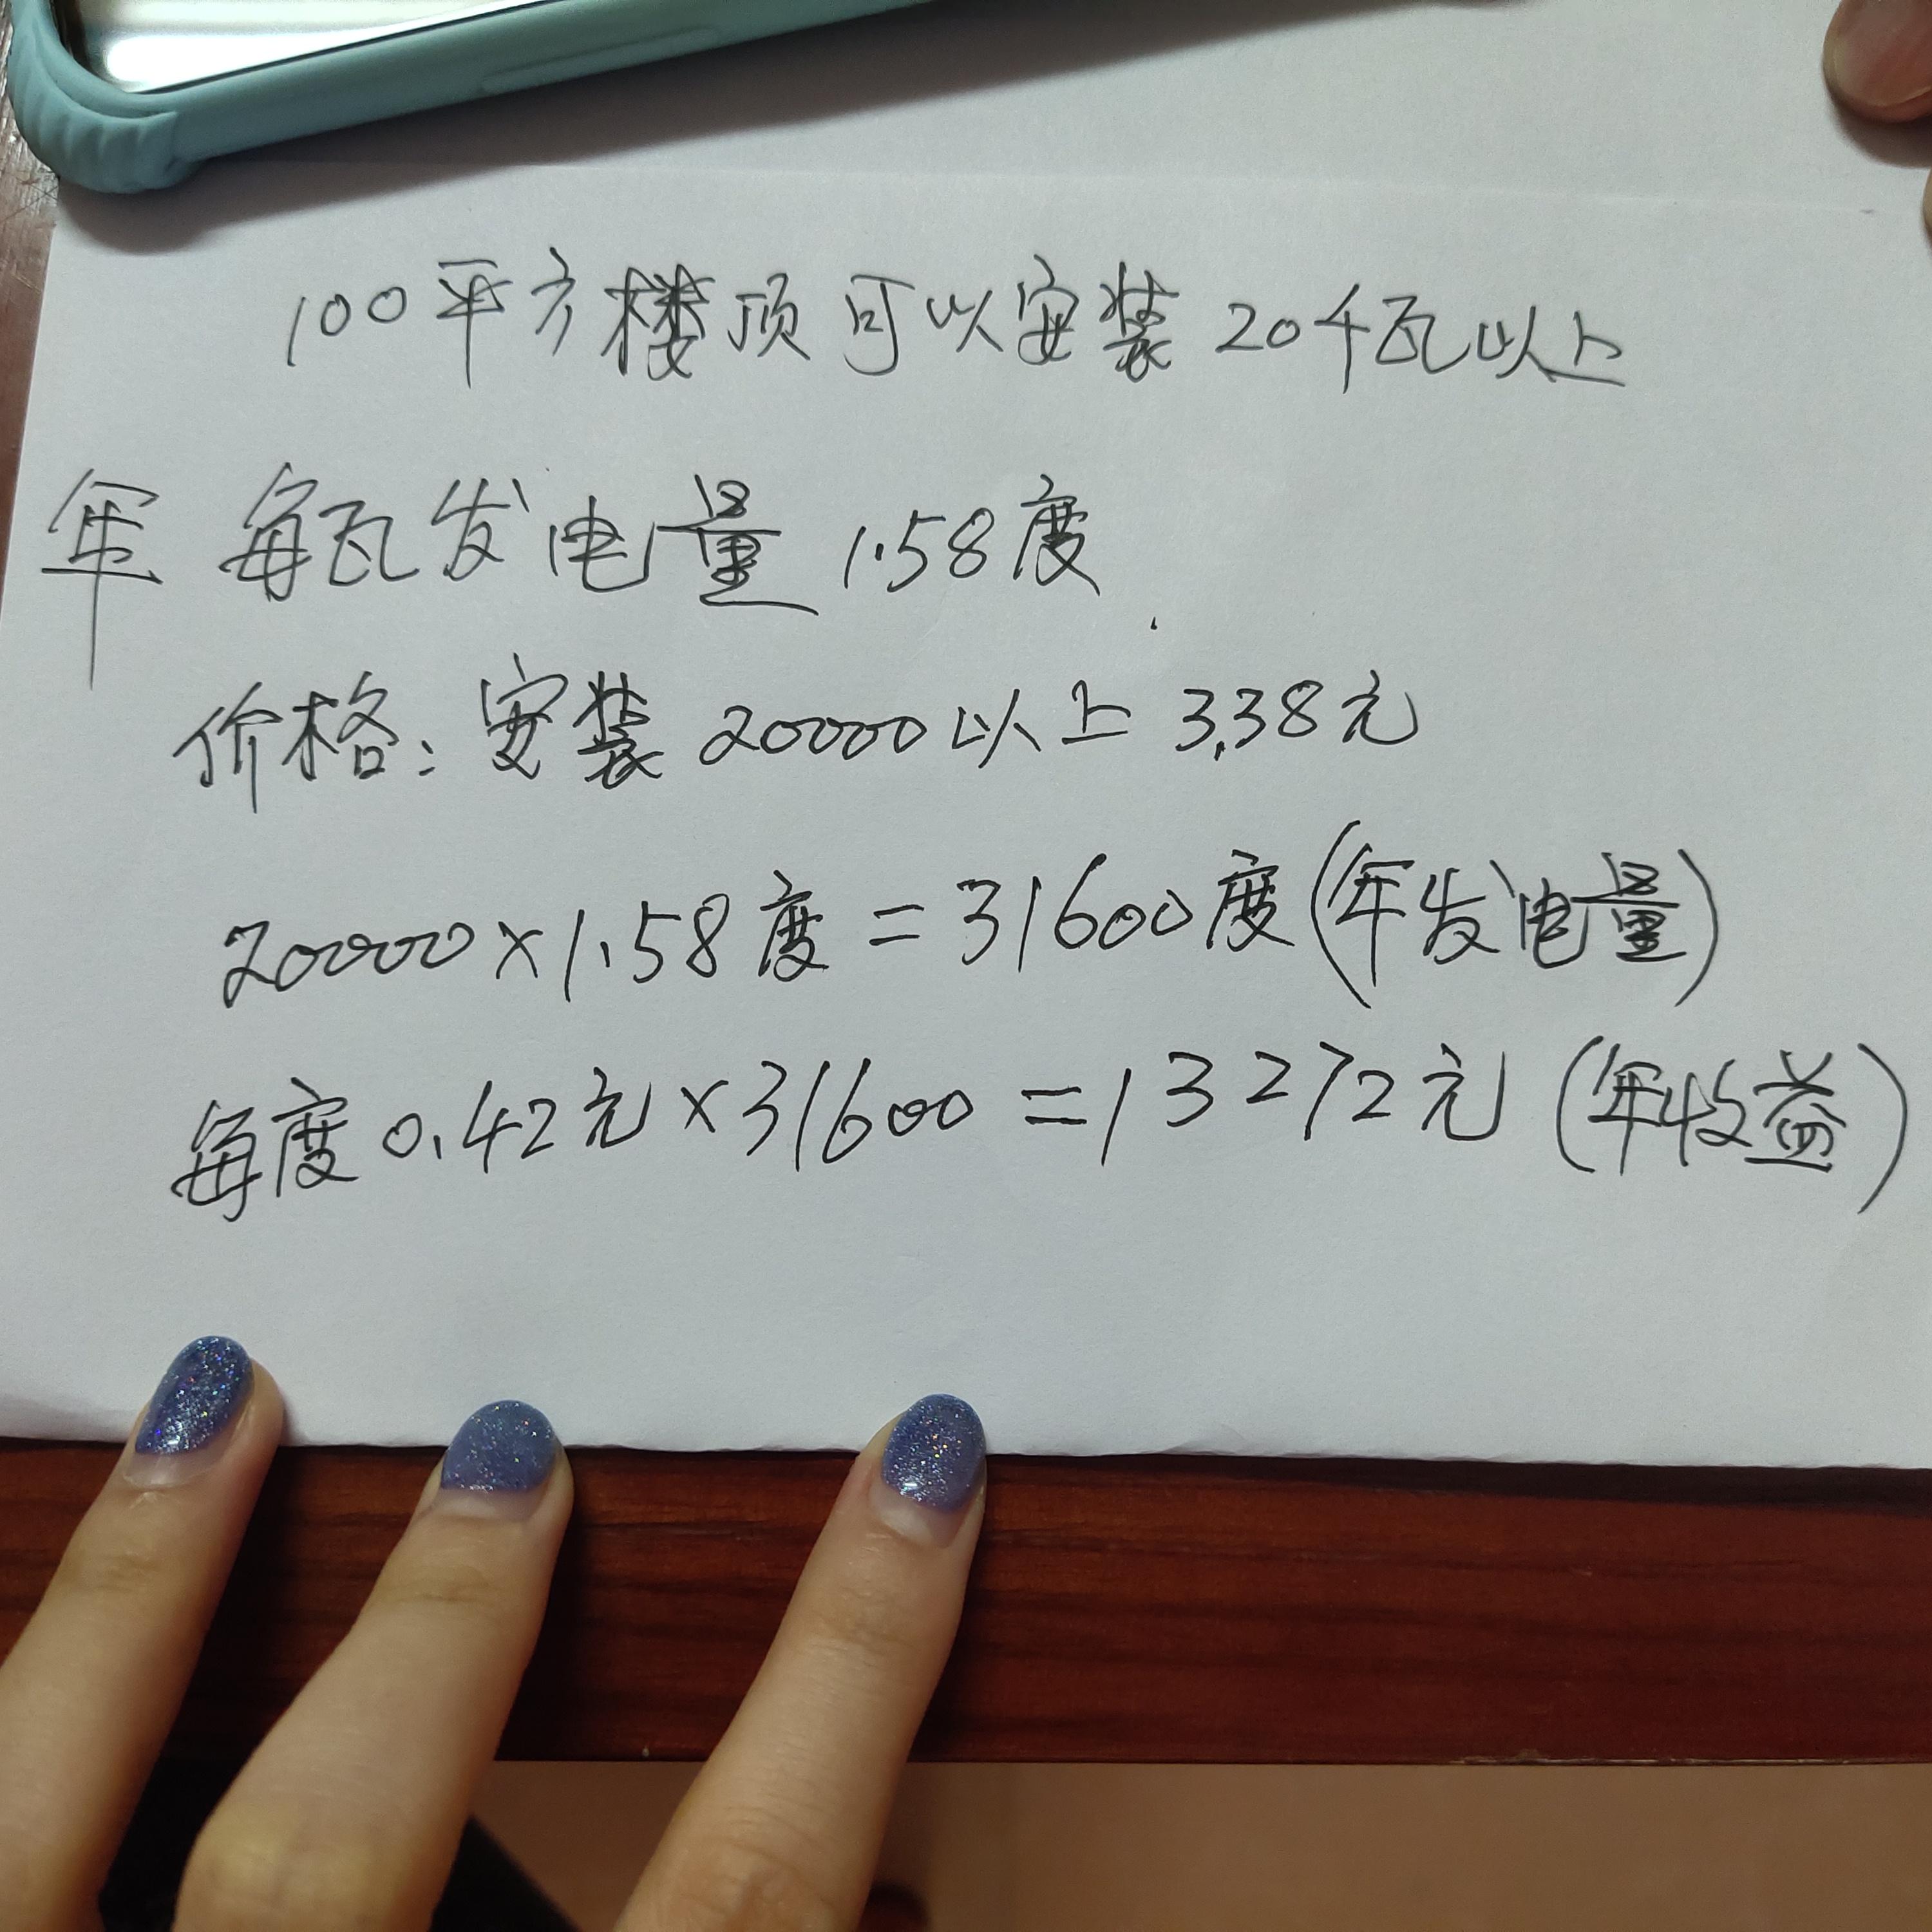 100平方楼顶可以安装20千瓦以上
年 每瓦发电量1.58度
价格：安装20000以上3.38元
20000×1.58度=31600度(年发电量)
每度0.42元×31600=13272元(年收益)